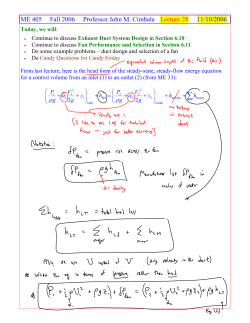 ME 405 Fall 2006 Professor John M. Cimbala Lecture 28 11/10/2006
Today, we will:
• Continue to discuss Exhaust Duct System Design in Section 6.10
• Continue to discuss Fan Performance and Selection in Section 6.11
• Do some example problems – duct design and selection of a fan
• Do Candy Questions for Candy Friday
= equivalent column height of the fluid (air)
From last lecture, here is the head form of the steady-state, steady-flow energy equation
for a control volume from an inlet (1) to an outlet (2) (from ME 33):
no turbine
in exhaust
ducts
Usually use 1
for turbulent
flows
Notation:
δP_fan = pressure rise across the fan
δP_fan = ρg h_fan
air density
Manufacturer list δP_fan in
inches of water
Σh_losses = h_LT = total head loss
h_LT = Σ major h_Lf + Σ minor h_LM
Write the eq. in terms of pressure rather than head
(P₁ + ½ρU₁² + ρgz₁) + δP_fan = (P₂ + ½ρU₂² + ρgz₂) + ρg h_LT